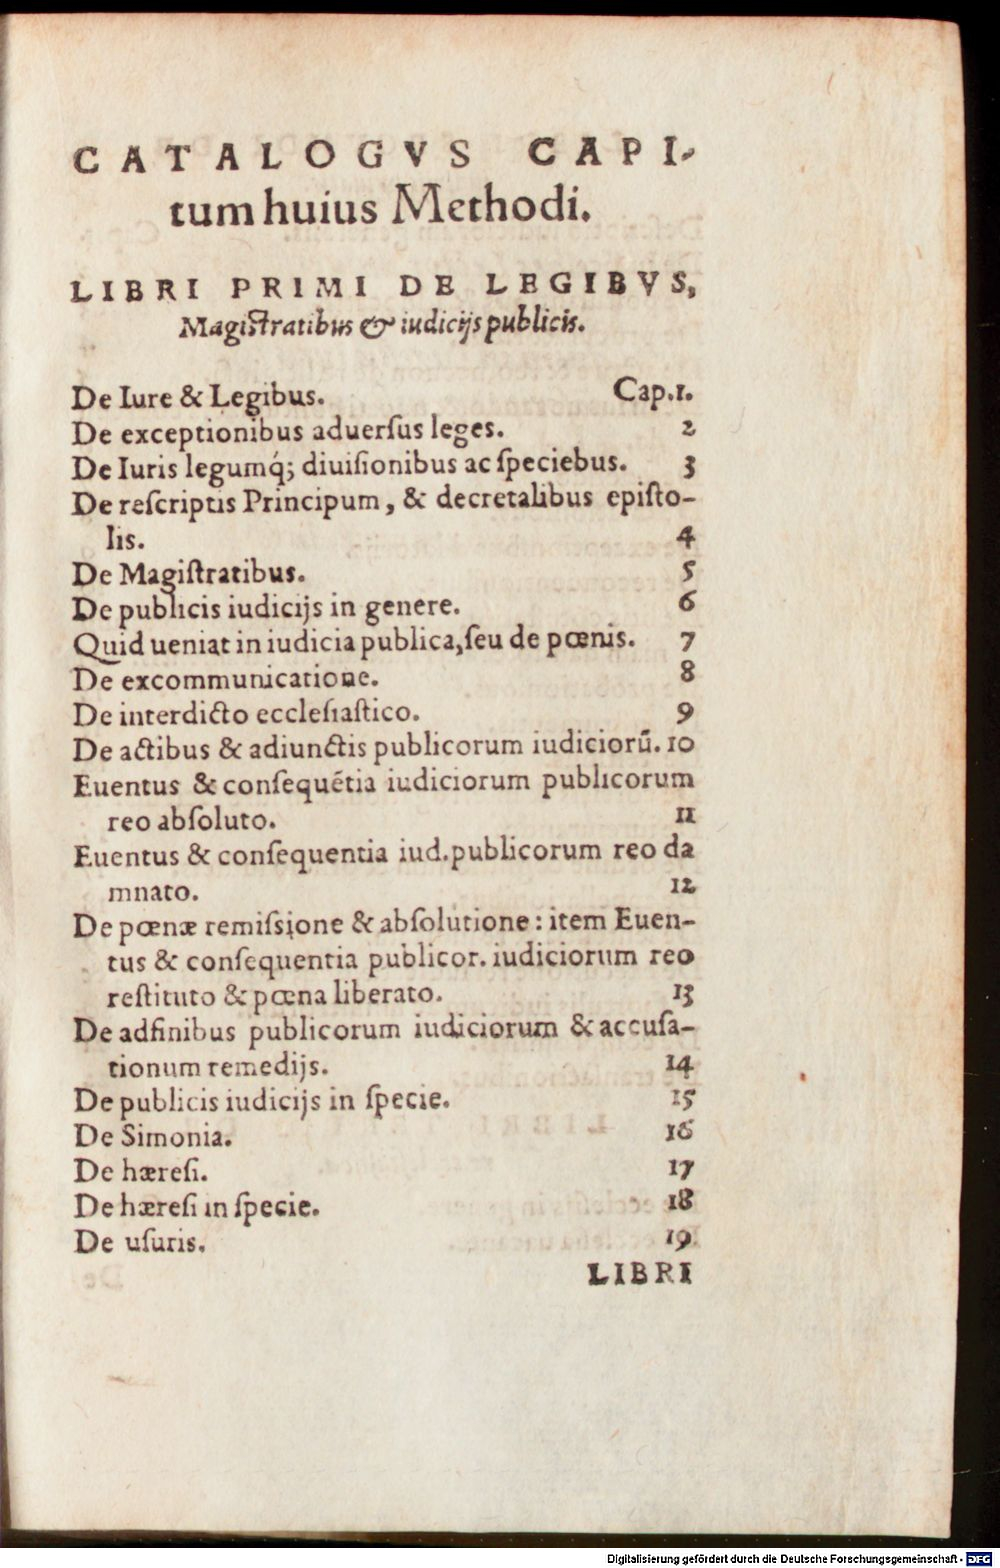 CATALOGVS CAPI-
tum huius Methodi.
LIBRI PRIMI DE LEGIBVS,
Magistratibus & iudicijs publicis.
De Iure & Legibus. Cap.1.
De exceptionibus aduerſus leges. 2
De Iuris legumq́; diuiſionibus ac ſpeciebus. 3
De reſcriptis Principum, & decretalibus epiſto-
lis. 4
De Magiſtratibus. 5
De publicis iudicijs in genere. 6
Quid ueniat in iudicia publica, ſeu de pœnis. 7
De excommunicatione. 8
De interdicto eccleſiaſtico. 9
De actibus & adiunctis publicorum iudiciorū. 10
Euentus & conſequētia iudiciorum publicorum
reo abſoluto. 11
Euentus & conſequentia iud. publicorum reo da
mnato. 12
De pœnæ remiſsione & abſolutione: item Euen-
tus & conſequentia publicor. iudiciorum reo
reſtituto & pœna liberato. 13
De adfinibus publicorum iudiciorum & accuſa-
tionum remedijs. 14
De publicis iudicijs in ſpecie. 15
De Simonia. 16
De hæreſi. 17
De hæreſi in ſpecie. 18
De uſuris. 19
LIBRI
Digitalisierung gefördert durch die Deutsche Forschungsgemeinschaft - DFG